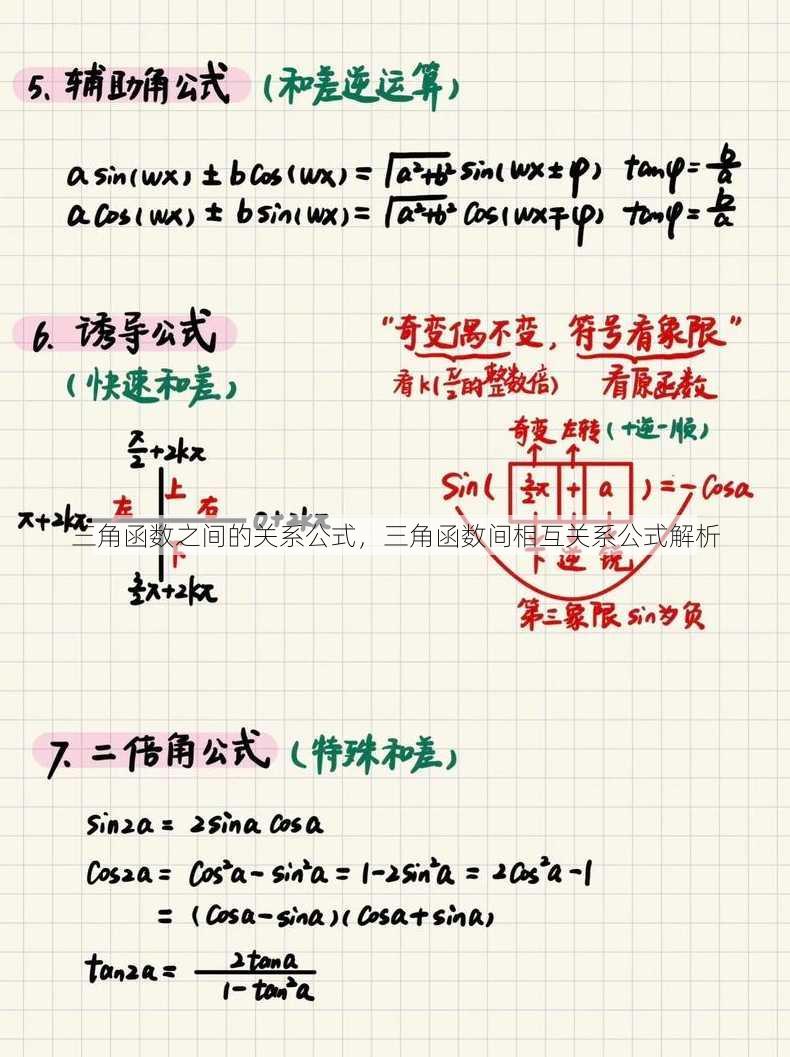 5、辅助角公式（和差逆运算）
a sin(wx) ± b cos(wx) = √a²+b² sin(wx±φ) tanφ = b/a
a cos(wx) ± b sin(wx) = √a²+b² cos(wx∓φ) tanφ = b/a
6、诱导公式
（快速和差）
"奇变偶不变，符号看象限"
看k(π/2的整数倍) 看原函数
奇变 左转（+逆-顺）
π/2+2kπ
上
π+2kπ 左 右 0+2kπ
下
3/2π+2kπ
Sin( 3/2π + a ) = -Cosa
下 逆 锐
第三象限 sin为负
三角函数之间的关系公式，三角函数间相互关系公式解析
7、二倍角公式（特殊和差）
Sin2a = 2sina Cosa
Cos2a = Cos²a - sin²a = 1-2sin²a = 2Cos²a -1
= (Cosa-sina)(Cosa+sina)
tan2a = 2tana / 1-tan²a